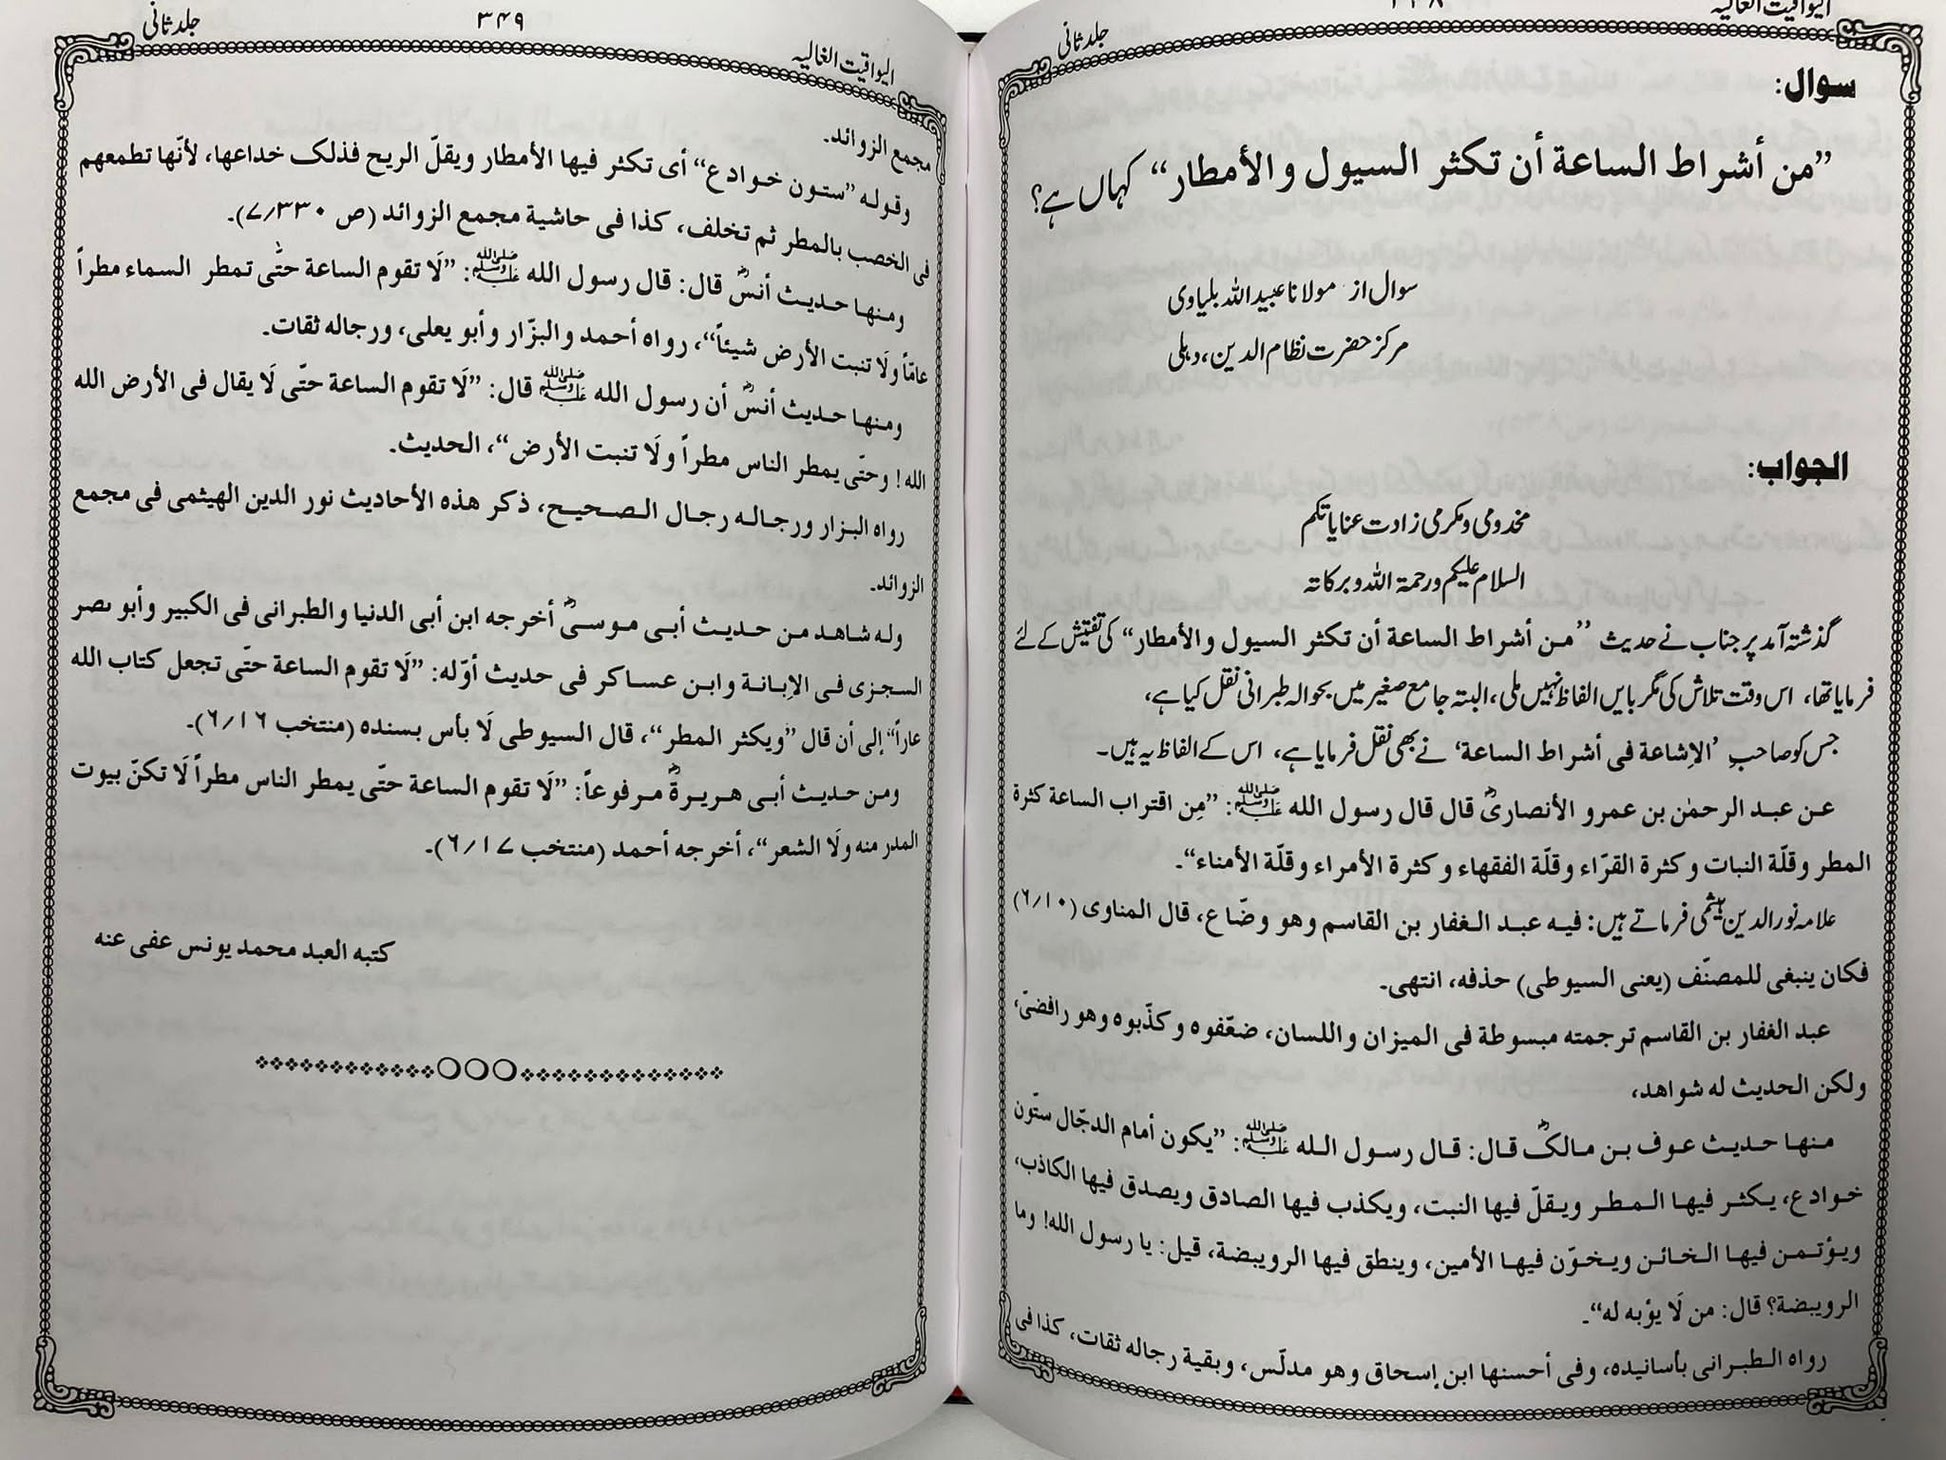 اليواقيت الغاليه
۳۴۸
جلد ثانی
سوال:
”من أشراط الساعة أن تكثر السيول والأمطار“ کہاں ہے؟
سوال از مولانا عبید اللہ بلیاوی
مرکز حضرت نظام الدین، دہلی
الجواب:
مخدومی ومکرمی زادت عنایاتکم
السلام علیکم ورحمۃ اللہ وبرکاتہ
گذشتہ آمد پر جناب نے حدیث ”من أشراط الساعة أن تكثر السيول والأمطار“ کی تفتیش کے لئے
فرمایا تھا، اس وقت تلاش کی مگر بایں الفاظ نہیں ملی، البتہ جامع صغیر میں بحوالہ طبرانی نقل کیا ہے،
جس کو صاحبِ ’الإشاعة فى أشراط الساعة‘ نے بھی نقل فرمایا ہے، اس کے الفاظ یہ ہیں۔
عن عبد الرحمٰن بن عمرو الأنصارىؓ قال قال رسول الله ﷺ: ”مِن اقتراب الساعة كثرة
المطر وقلّة النبات وكثرة القرّاء وقلّة الفقهاء وكثرة الأمراء وقلّة الأمناء“۔
علامہ نورالدین ہیثمی فرماتے ہیں: فيه عبد الغفار بن القاسم وهو وضّاع، قال المناوى (۶/۱۰)
فكان ينبغى للمصنّف (يعنى السيوطى) حذفه، انتهى۔
عبد الغفار بن القاسم ترجمته مبسوطة فى الميزان واللسان، ضعّفوه وكذّبوه وهو رافضىّ،
ولكن الحديث له شواهد،
منها حديث عوف بن مالكؓ قال: قال رسول الله ﷺ: ”يكون أمام الدجّال ستّون
خوادع، يكثر فيها المطر ويقلّ فيها النبت، ويكذب فيها الصادق ويصدق فيها الكاذب،
ويؤتمن فيها الخائن ويخوّن فيها الأمين، وينطق فيها الرويبضة، قيل: يا رسول الله! وما
الرويبضة؟ قال: من لَا يؤبه له“۔
رواه الطبرانى بأسانيده، وفى أحسنها ابن إسحاق وهو مدلّس، وبقية رجاله ثقات، كذا فى
اليواقيت الغاليه
۳۴۹
جلد ثانی
مجمع الزوائد۔
وقوله ”ستون خوادع“ أى تكثر فيها الأمطار ويقلّ الريح فذلك خداعها، لأنّها تطمعهم
فى الخصب بالمطر ثم تخلف، كذا فى حاشية مجمع الزوائد (ص ۷/۳۳۰)۔
ومنها حديث أنسؓ قال: قال رسول الله ﷺ: ”لَا تقوم الساعة حتّٰى تمطر السماء مطراً
عامّاً ولَا تنبت الأرض شيئاً“، رواه أحمد والبزّار وأبو يعلى، ورجاله ثقات۔
ومنها حديث أنسؓ أن رسول الله ﷺ قال: ”لَا تقوم الساعة حتّى لَا يقال فى الأرض الله
الله! وحتّى يمطر الناس مطراً ولَا تنبت الأرض“، الحديث۔
رواه البزار ورجاله رجال الصحيح، ذكر هذه الأحاديث نور الدين الهيثمى فى مجمع
الزوائد۔
وله شاهد من حديث أبى موسىؓ أخرجه ابن أبى الدنيا والطبرانى فى الكبير وأبو نصر
السجزى فى الإبانة وابن عساكر فى حديث أوّله: ”لَا تقوم الساعة حتّى تجعل كتاب الله
عاراً“ إلى أن قال ”ويكثر المطر“، قال السيوطى لَا بأس بسنده (منتخب ۶/۱۶)۔
ومن حديث أبى هريرةؓ مرفوعاً: ”لَا تقوم الساعة حتّى يمطر الناس مطراً لَا تكنّ بيوت
المدر منه ولَا الشعر“، أخرجه أحمد (منتخب ۶/۱۷)۔
كتبه العبد محمد يونس عفى عنه